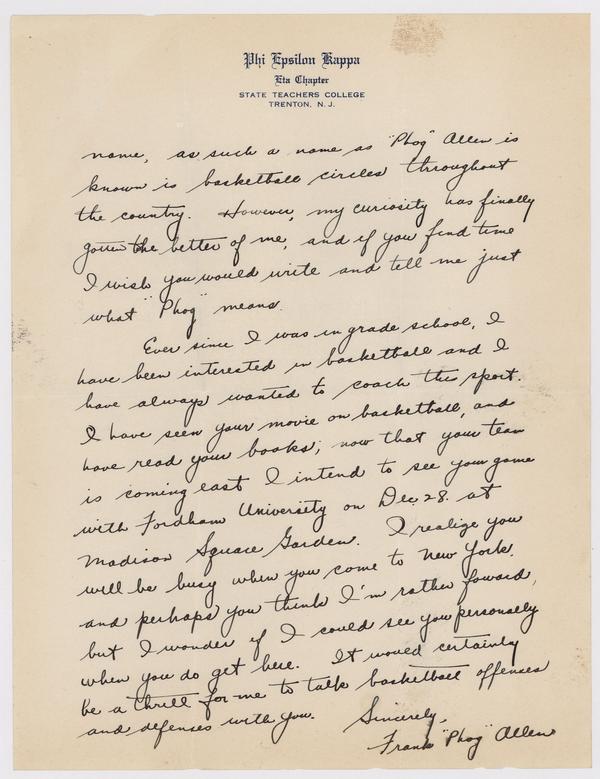 Phi Epsilon Kappa
Eta Chapter
STATE TEACHERS COLLEGE
TRENTON, N. J.
name, as such a name as "Phog" Allen is
known is basketball circles throughout
the country. However, my curiosity has finally
gotten the better of me, and if you find time
I wish you would write and tell me just
what "Phog" means.
Ever since I was in grade school, I
have been interested in basketball and I
have always wanted to coach the sport.
I have seen your movie on basketball, and
have read your books; now that your team
is coming east I intend to see your game
with Fordham University on Dec. 28. at
Madison Square Garden. I realize you
will be busy when you come to New York.
and perhaps you think I'm rather foward,
but I wonder if I could see you personally
when you do get here. It would certainly
be a thrill for me to talk basketball offenses
and defenses with you. Sincerely,
Frank "Phog" Allen